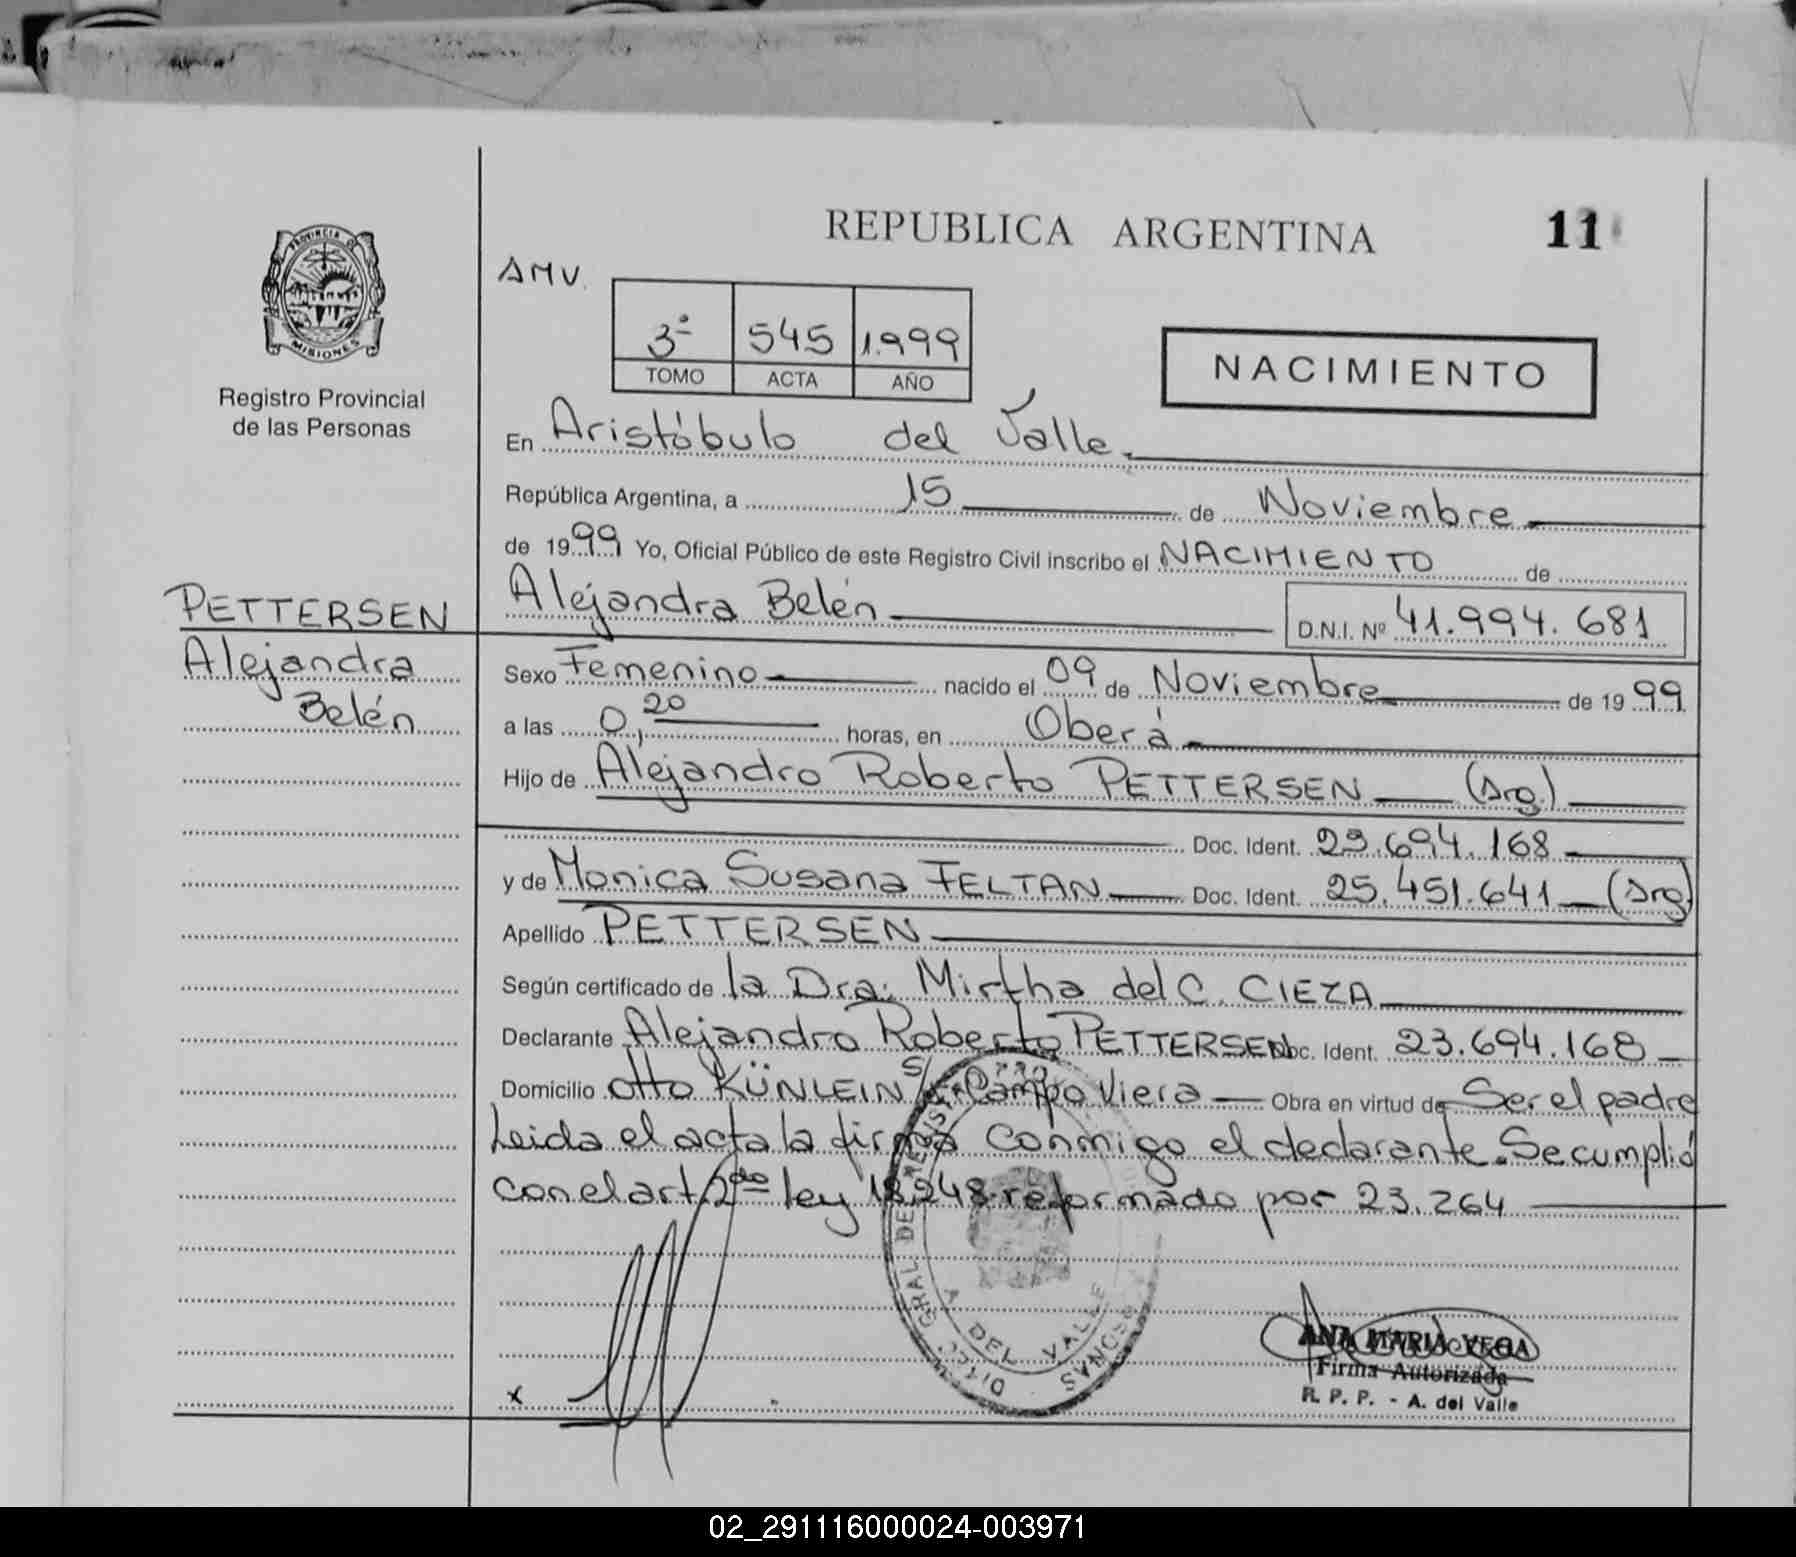 REPUBLICA ARGENTINA
11
PROVINCIA DE
MISIONES
Registro Provincial
de las Personas
AMV.
3º 545 1.999
TOMO ACTA AÑO
NACIMIENTO
En Aristóbulo del Valle.
República Argentina, a 15 de Noviembre
de 1999 Yo, Oficial Público de este Registro Civil inscribo el NACIMIENTO de
Alejandra Belén D.N.I. Nº 41.994.681
PETTERSEN
Alejandra
Belén
Sexo Femenino nacido el 09 de Noviembre de 1999
a las 0,20 horas, en Oberá
Hijo de Alejandro Roberto PETTERSEN (Arg.)
Doc. Ident. 23.694.168
y de Monica Susana FELTAN Doc. Ident. 25.451.641 (Arg)
Apellido PETTERSEN
Según certificado de la Dra. Mirtha del C. CIEZA
Declarante Alejandro Roberto PETTERSEN Doc. Ident. 23.694.168
Domicilio Otto KÜNLEIN S/Nº Campo Viera Obra en virtud de Ser el padre
Leida el acta la firma conmigo el declarante. Se cumplió
con el art 2do ley 18.248 reformado por 23.264
DEL VALLE
x
ANA MARIA VEGA
Firma Autorizada
R. P. P. - A. del Valle
02_291116000024-003971